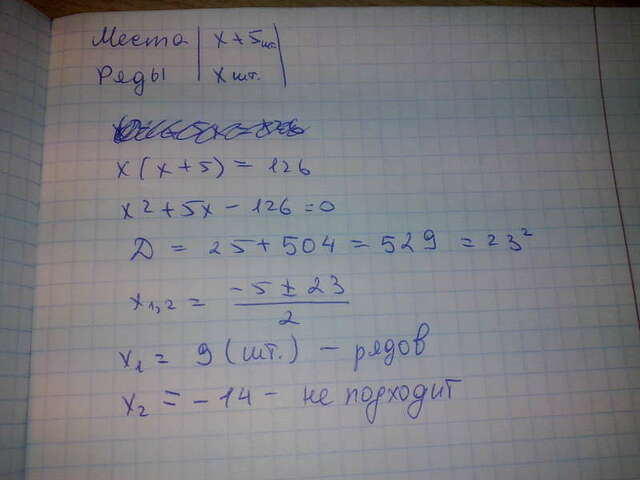 Места | x + 5шт. |
Ряды | x шт. |
x(x+5) = 126
x2 + 5x - 126 = 0
Д = 25 + 504 = 529 = 23²
x₁,₂ = (-5 ± 23)/2
x₁ = 9 (шт.) - рядов
x₂ = -14 - не подходит